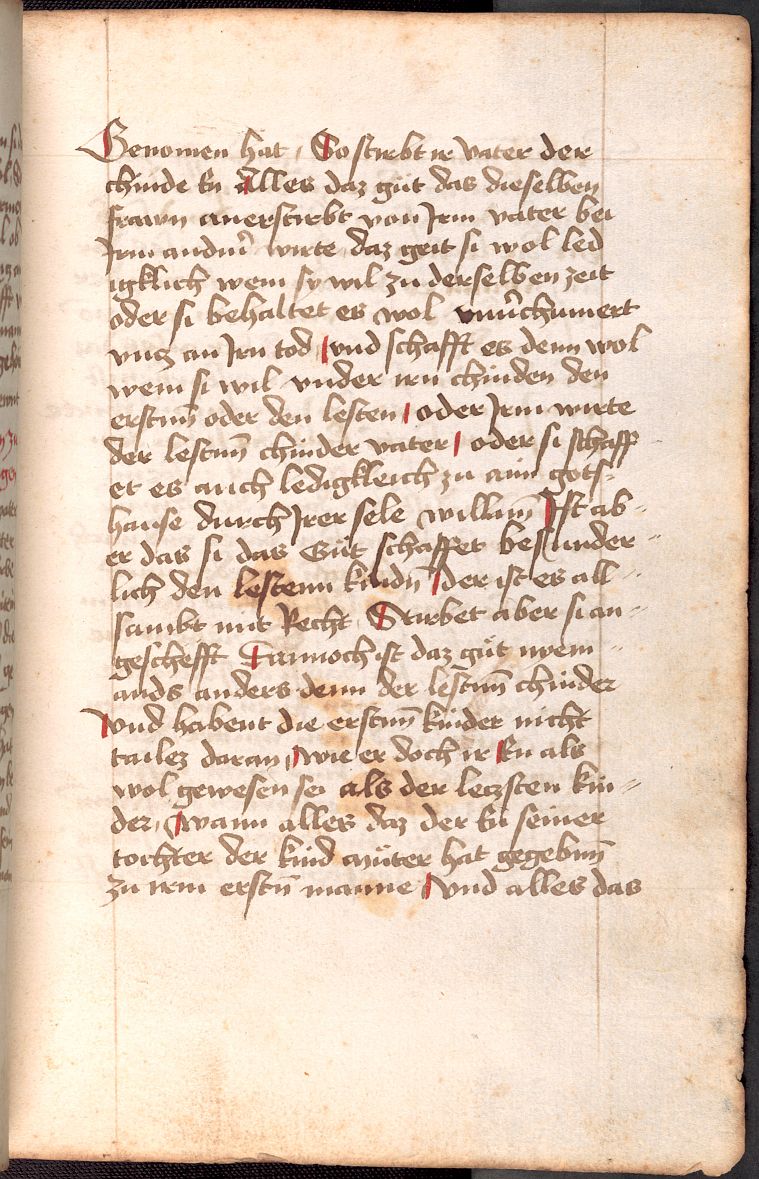 Genomen hat / So stirbt ir vater der
chinde En Alles daz gůt das dieselben
frawn anerstirbt von Jrm vater bei
Jrm andm̄ wirte daz geit si wol led
igklich wem sy wil zu derselben zeit
oder si behaltet es wol vnuˀchumert
vnz an Jrn tod / vnd schafft es denn wol
wem si wil vnder irn chinden den
erstnn̄ oder den lesten / oder Jrm wirte
der lestnn̄ chinder vater / oder si schaff
et es auch ledigkleich zu aim gots-
hause durch Jrer sele willnn̄ Jst ab-
er das si das Gůt schaffet besunder-
lich den lestenn kindn̄ / der ist es all-
sambt mit Recht Stirbet aber si an-
geschefft Dannoch ist daz gůt nyem-
ands anders denn der lestnn̄ chinder
vnd habent die erstnn̄ kinder nicht
tailez daran / wie er doch ir En als
wol gewesen sei als der leczsten kin-
der / wann alles daz der En seiner
tochter der kind můter hat gegebnn̄
zu irm erstn̄ manne / vnd alles das